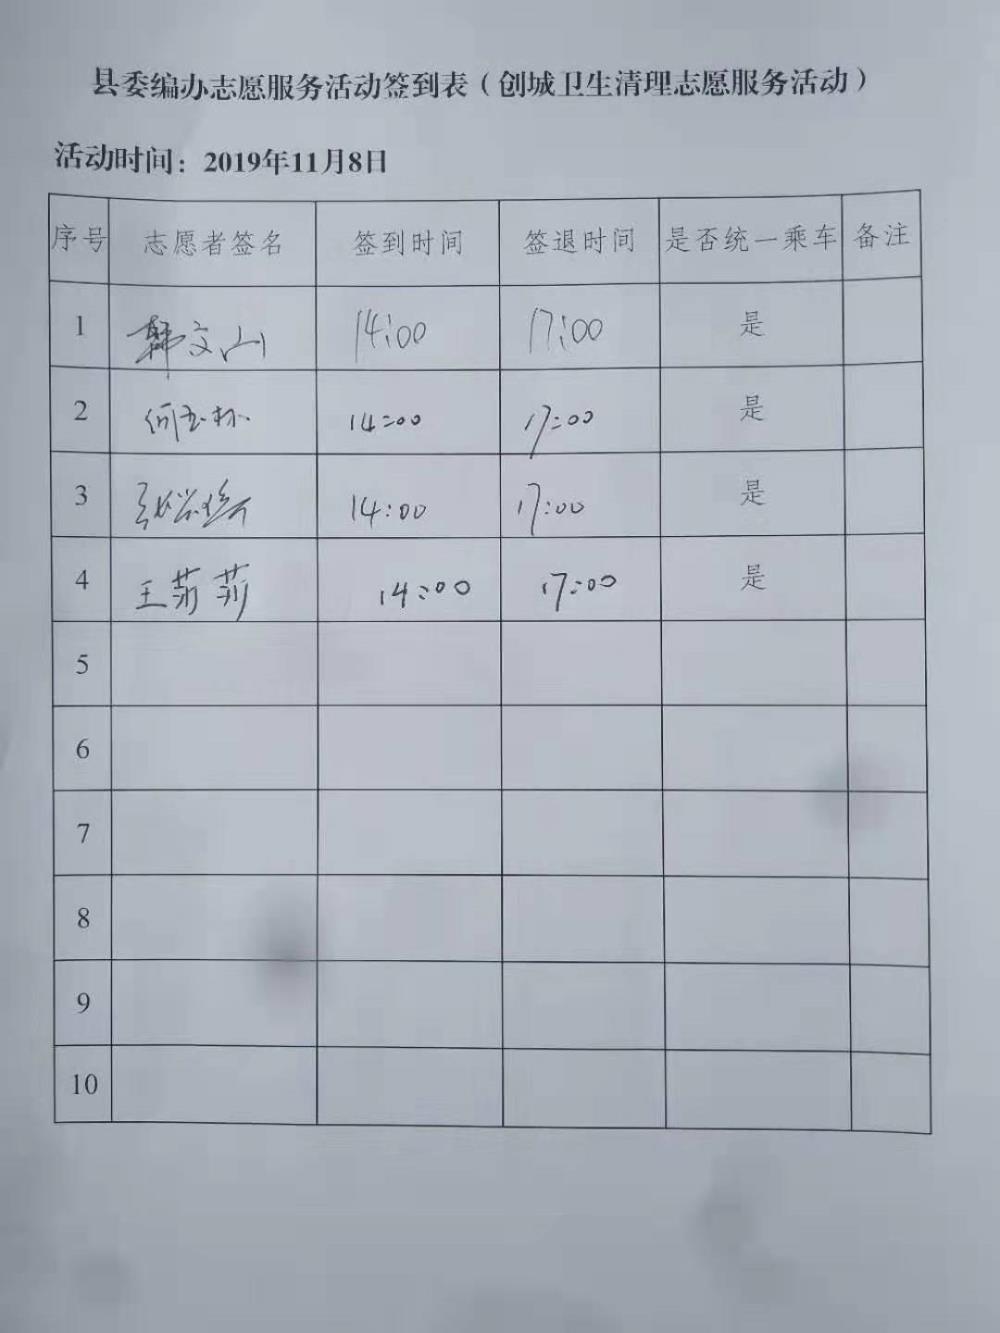 县委编办志愿服务活动签到表（创城卫生清理志愿服务活动）
活动时间：2019年11月8日
序号 志愿者签名 签到时间 签退时间 是否统一乘车 备注
1 韩文山 14:00 17:00 是
2 何玉林 14:00 17:00 是
3 14:00 17:00 是
4 王莉莉 14:00 17:00 是
5
6
7
8
9
10